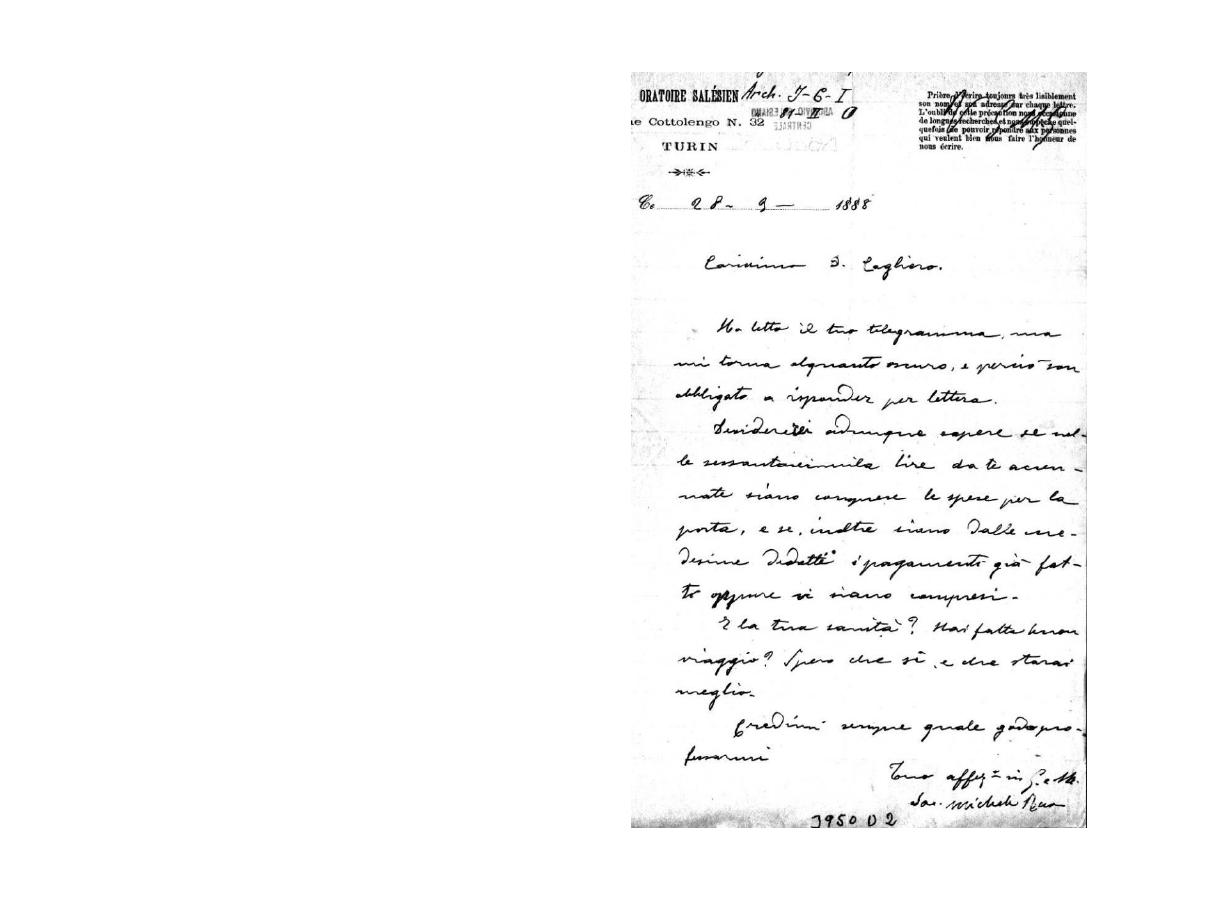 ORATOIRE SALÉSIEN
Arch. J-6-I
ue Cottolengo N. 32
TURIN
Prière d'écrire toujours très lisiblement
son nom et son adresse sur chaque lettre.
L'oubli de cette précaution nous occasionne
de longues recherches et nous empêche quel-
quefois de pouvoir répondre aux personnes
qui veulent bien nous faire l'honneur de
nous écrire.
28 - 9 - 1888
Carissimo D. Cagliero.
Ho letto il tuo telegramma, ma
mi torna alquanto oscuro, e perciò son
obbligato a risponder per lettera.
Desidererei adunque sapere se nel-
le sessantaseimila lire da te accen-
nate siano comprese le spese per la
porta, e se, inoltre siano dalle me-
desime dedotti i pagamenti già fat-
ti oppure vi siano compresi.
E la tua sanità? Hai fatto buon
viaggio? Spero che sì, e che starai
meglio.
Credimi sempre quale godo pro-
fessarmi
Tuo affez.mo in G. e M.
Sac. Michele Rua
3950 D 2